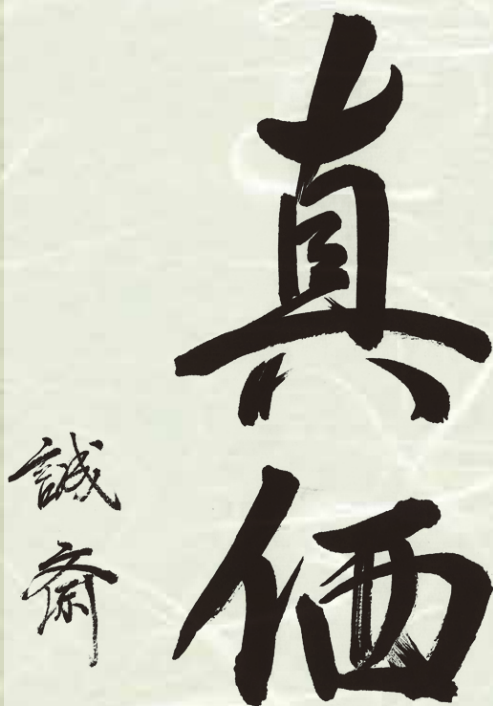 真価
誠斎